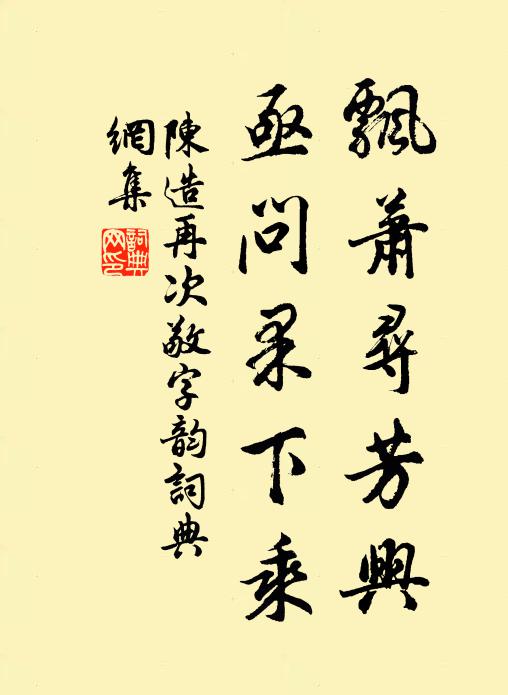 飄蕭尋芳興
亟問果下乘
陳造再次敬字韵詞典
網集
詞典
网印